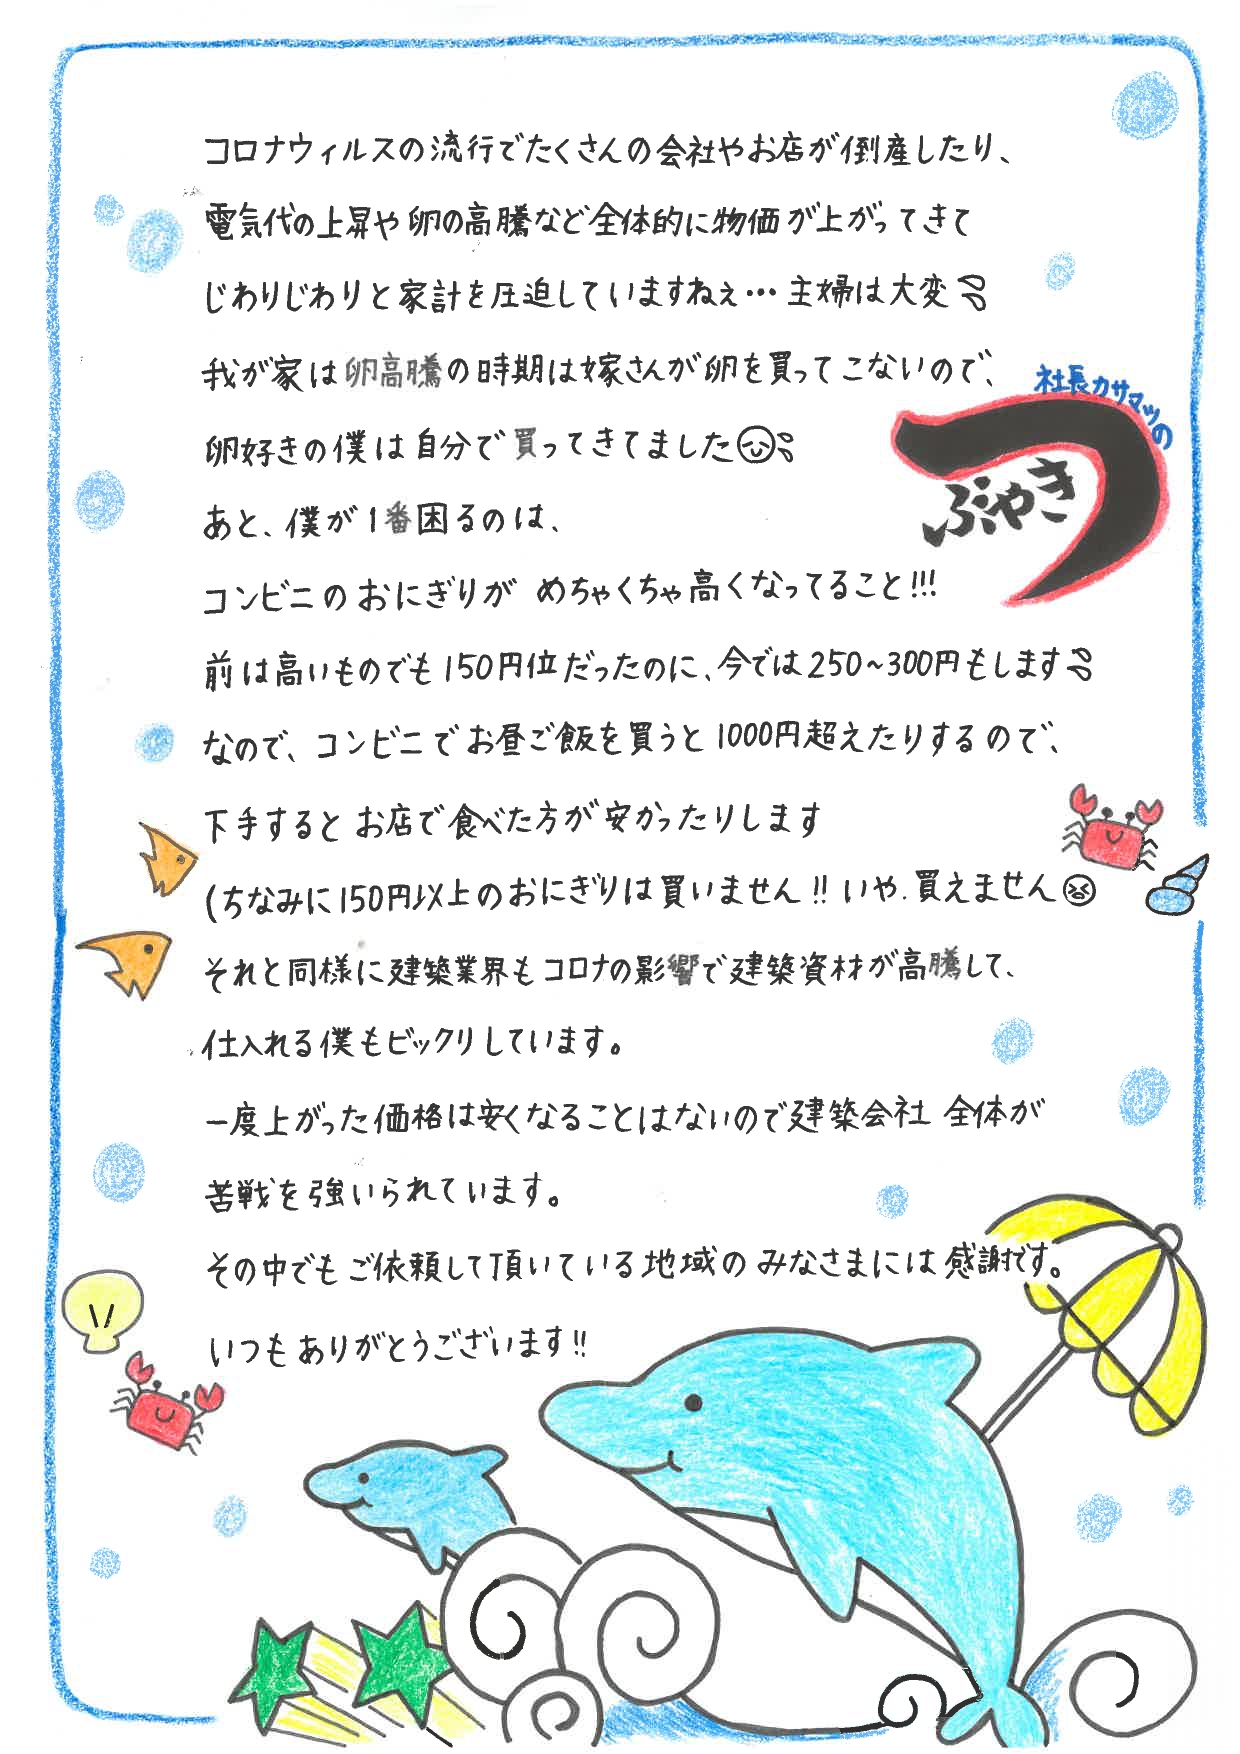 コロナウィルスの流行でたくさんの会社やお店が倒産したり、
電気代の上昇や卵の高騰など全体的に物価が上がってきて
じわりじわりと家計を圧迫していますねぇ…主婦は大変
我が家は卵高騰の時期は嫁さんが卵を買ってこないので、
社長カサマツの
つぶやき
卵好きの僕は自分で買ってきてました
あと、僕が1番困るのは、
コンビニのおにぎりがめちゃくちゃ高くなってること!!!
前は高いものでも150円位だったのに、今では250~300円もします
なので、コンビニでお昼ご飯を買うと1000円超えたりするので、
下手するとお店で食べた方が安かったりします
(ちなみに150円以上のおにぎりは買いません!!いや、買えません
それと同様に建築業界もコロナの影響で建築資材が高騰して、
仕入れる僕もビックリしています。
一度上がった価格は安くなることはないので建築会社 全体が
苦戦を強いられています。
その中でもご依頼して頂いている地域のみなさまには感謝です。
いつもありがとうございます!!